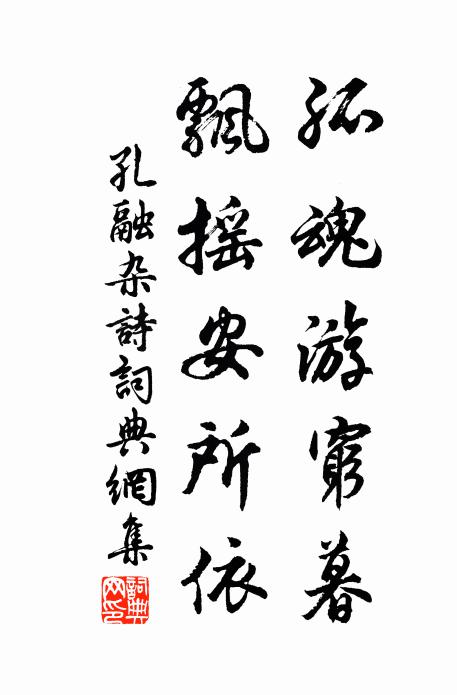 孤魂游窮暮
飄摇安所依
孔融杂詩詞典網集
詞典网印